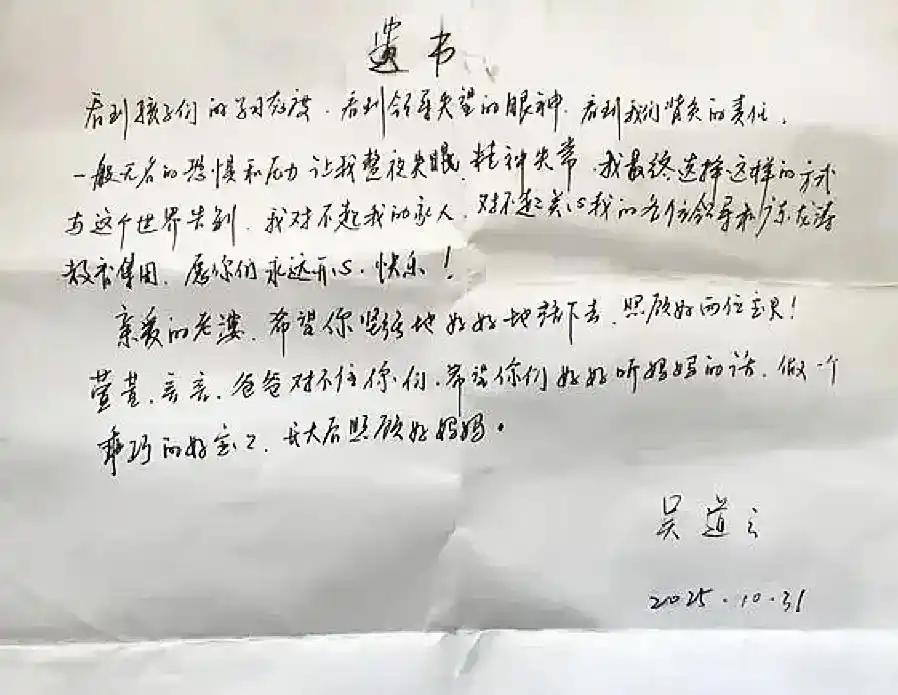 遗书
看到孩子们的学习态度、看到领导失望的眼神、看到我们背负的责任，
一般无名的恐惧和压力让我整夜失眠、精神失常，我最终选择这样的方式
与这个世界告别，我对不起我的家人，对不起关心我的各位领导和
教育集团，愿你们永远开心、快乐！
亲爱的老婆，希望你坚强地好好地活下去，照顾好两位宝贝！
萱萱、言言，爸爸对不住你们，希望你们好好听妈妈的话，做一个
乖巧的好宝宝，长大后照顾好妈妈。
吴道云
2025.10.31